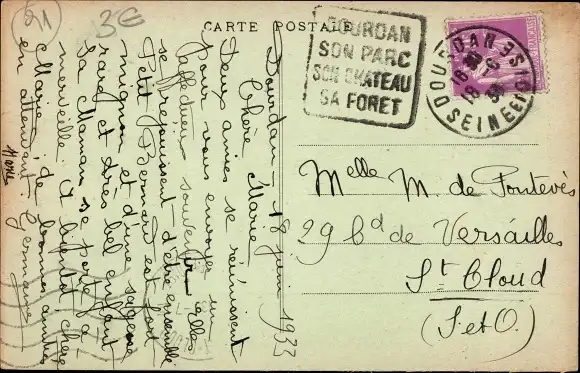 21
3€
CARTE POSTALE
DOURDAN
SON PARC
SON CHATEAU
SA FORET
DOURDAN
18 - 6
33
SEINE ET OISE
Dourdan - 18 juin 1933
Chère Marie
Deux amies se réunissent
pour vous envoyer un
affectueux souvenir elles
se réjouissent d'être ensemble
Petit Bernard est fort
mignon et d'une sagesse
rare et très bel enfant
Sa Maman se porte à
merveille. A bientôt chère
Marie, de bonnes amitiés
en attendant. Germaine
Melle M. de Pontevès
29 Bd de Versailles
St Cloud
(S. et O.)